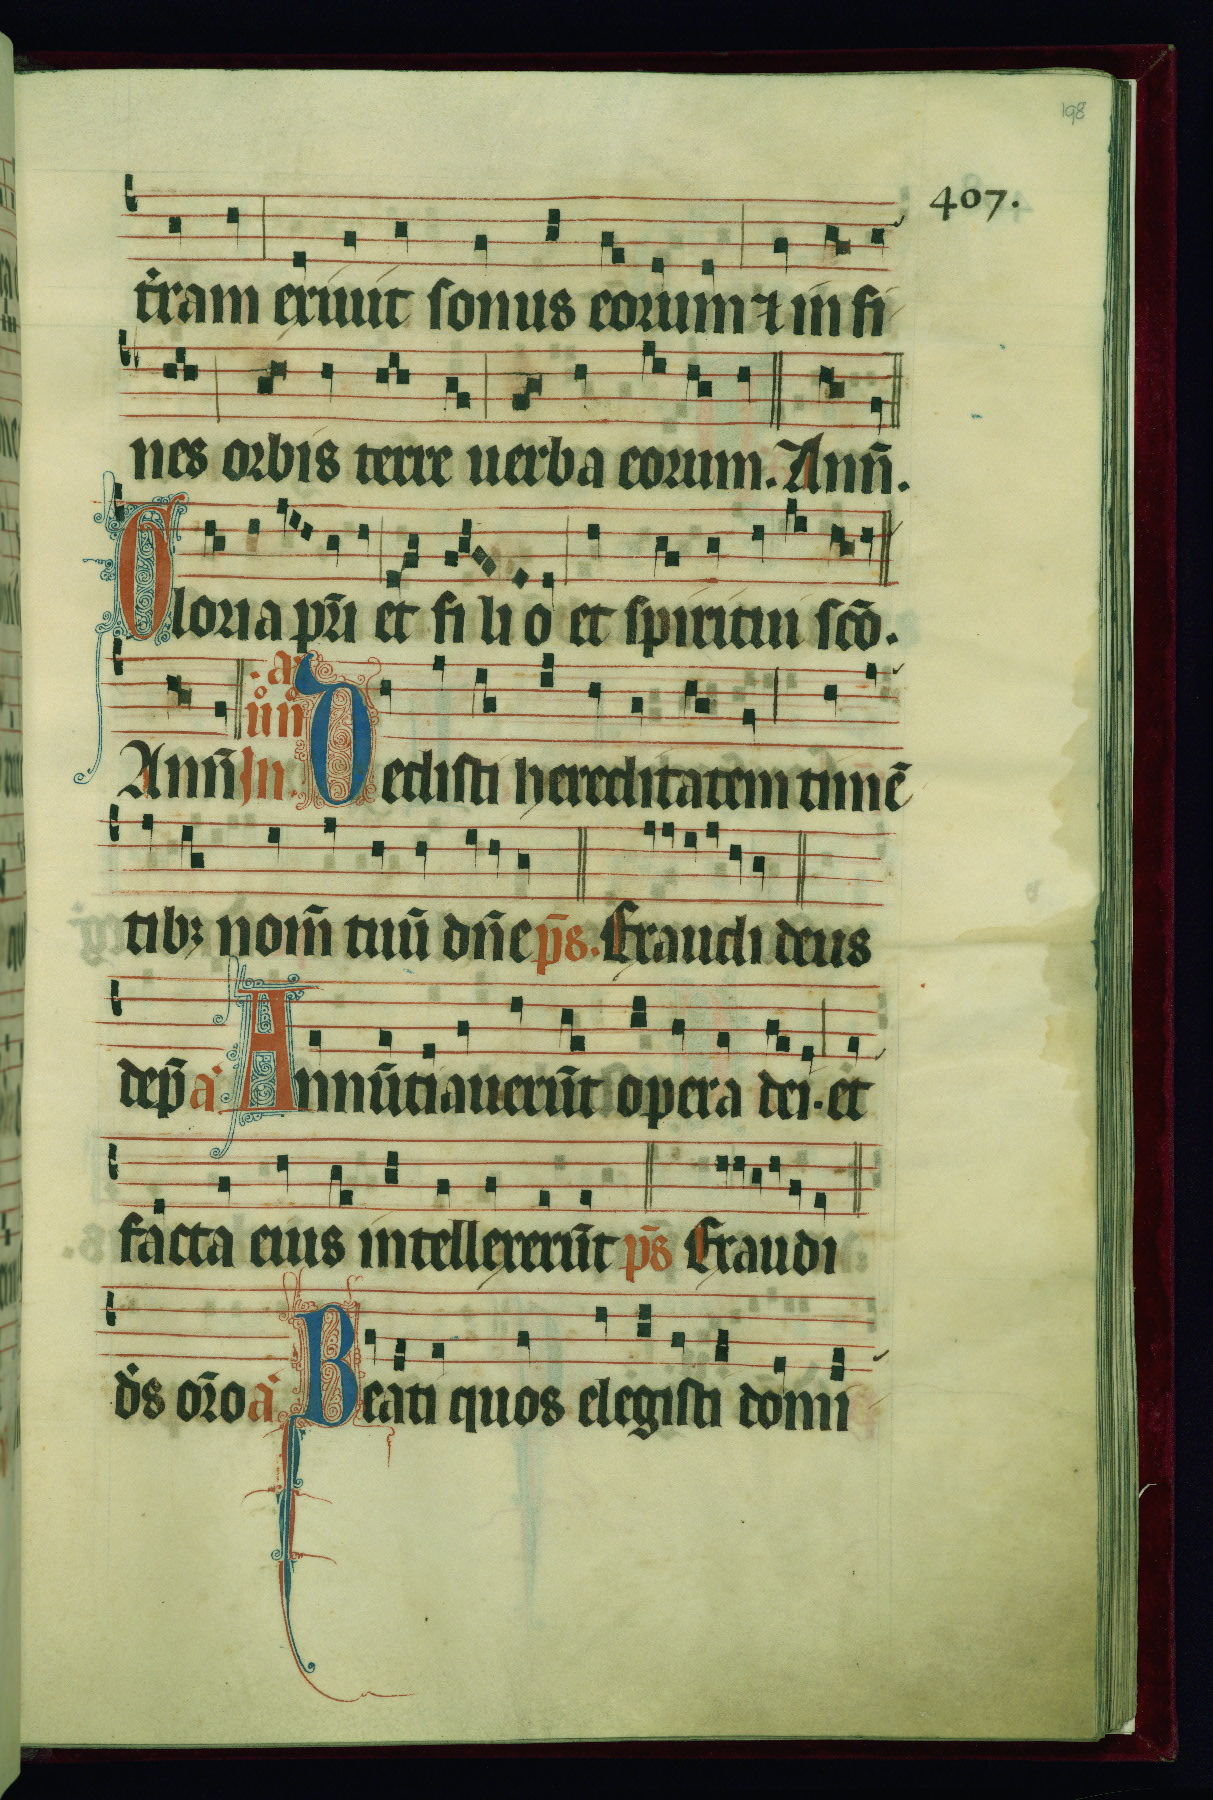 198
407.
t̄ram exiuit sonus eorum ⁊ in fi
nes orbis terre uerba eorum. Annū.
Gloria pr̄i et fi li o et spiritui scō.
.a.
Annū In. iiͦnͦ Dedisti hereditatem timē
tibꝫ nom̄ tuū dn̄e p̄s. Exaudi deus
dep̄ a Annūtiauerūt opera dei. et
facta eius intellexerūt p̄s Exaudi
ds̄ or̄o a Beati quos elegisti domi